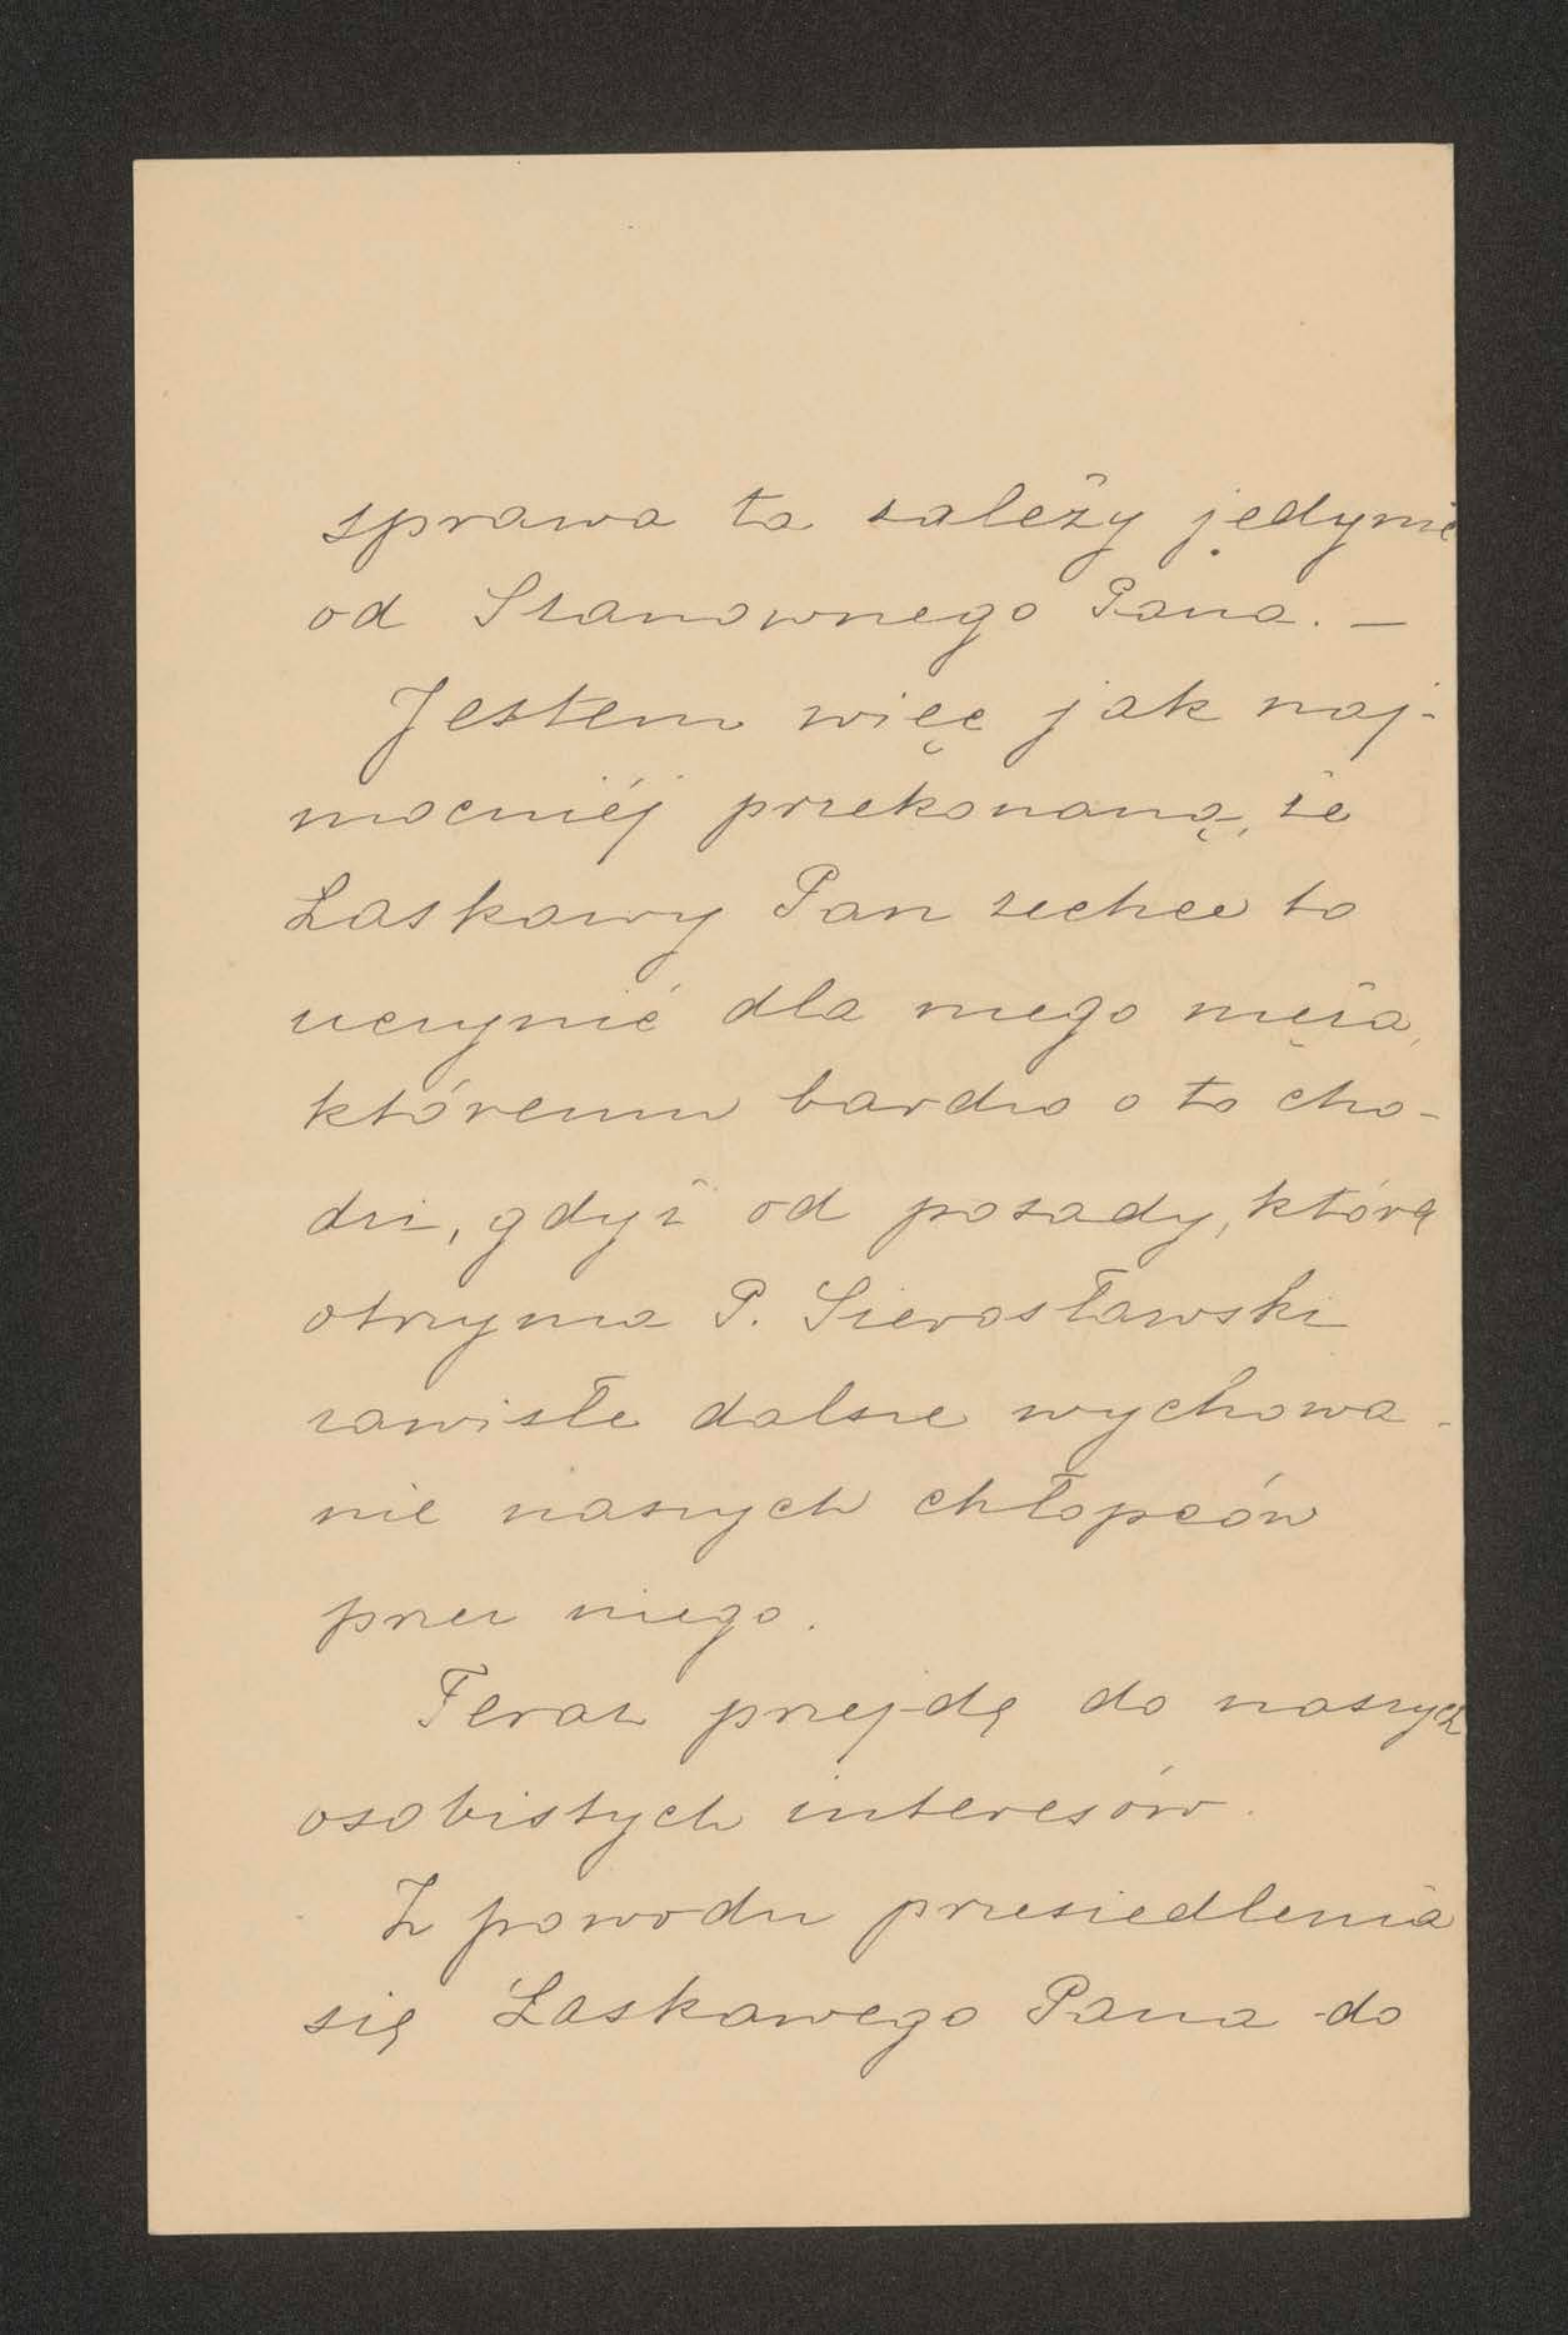 sprawa ta zależy jedynie
od Szanownego Pana. —
Jestem więc jak naj-
mocniéj przekonaną, że
Łaskawy Pan zechce to
uczynić dla mego męża,
któremu bardzo o to cho-
dzi, gdyż od posady, którą
otrzyma P. Sierosławski
zawisłe dalsze wychowa-
nie naszych chłopców
przez niego.
Teraz przejdę do naszych
osobistych interesów.
Z powodu przesiedlenia
się Łaskawego Pana do